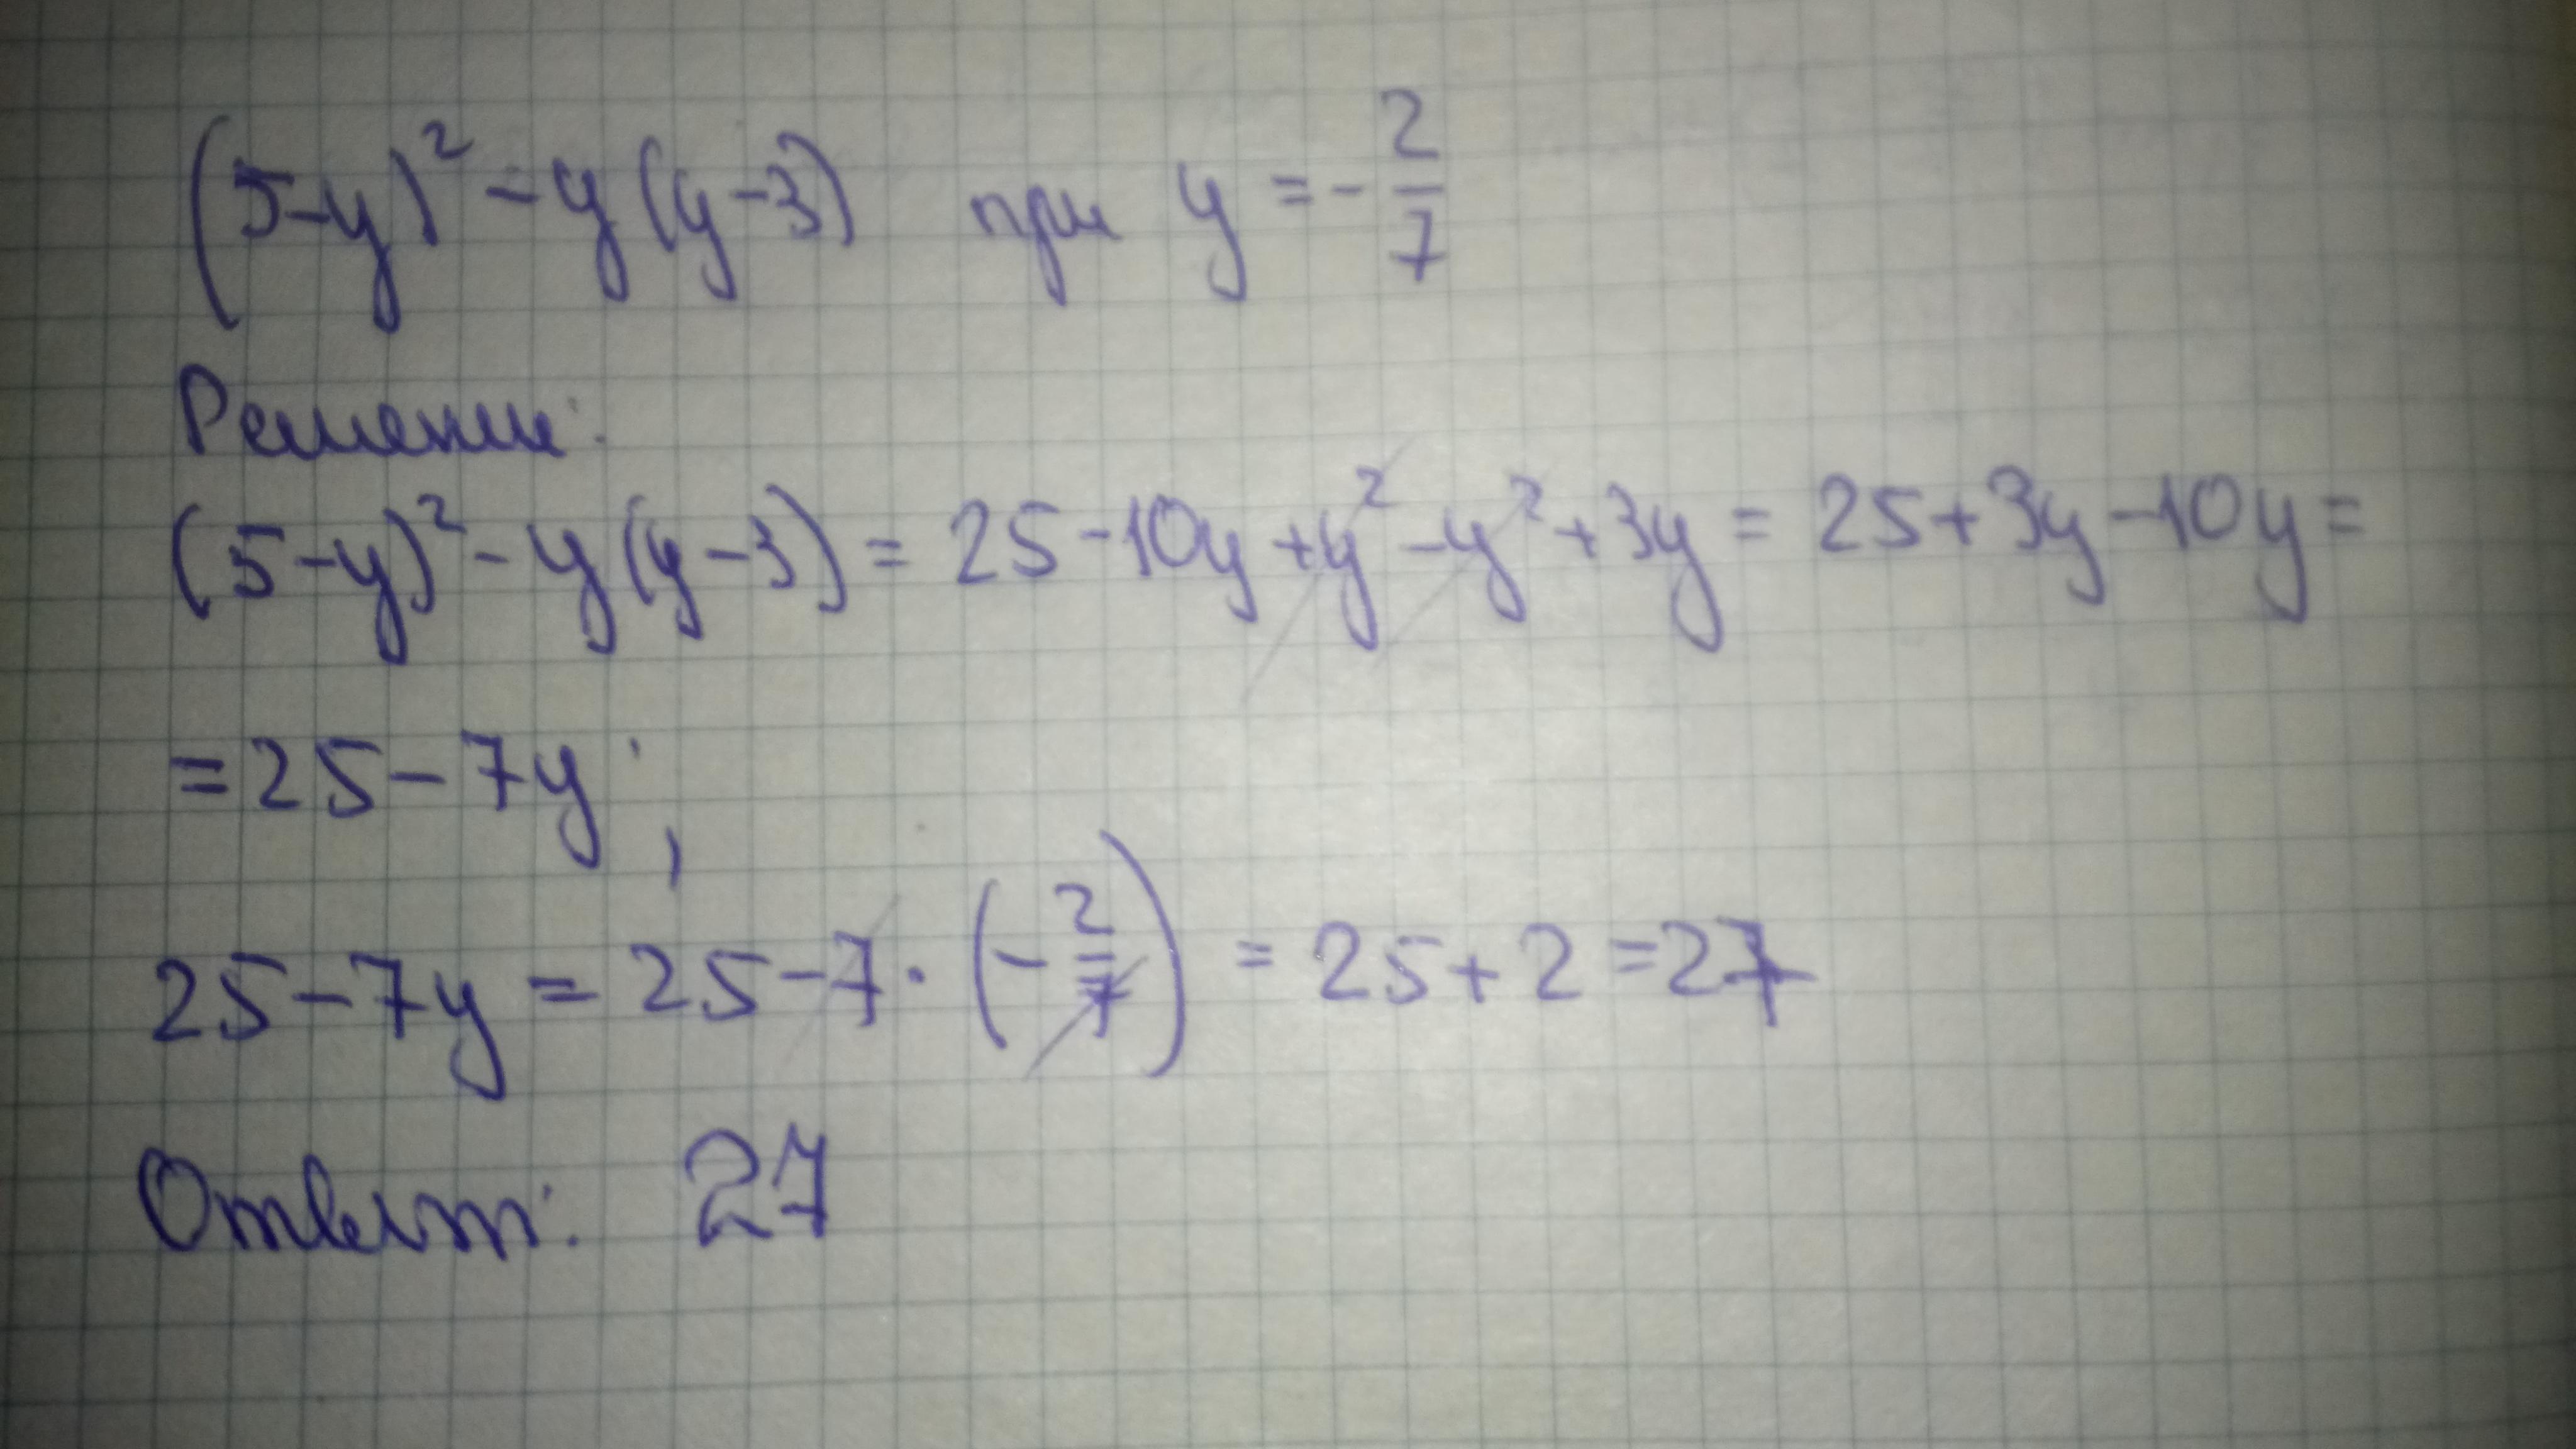 (5-y)² - y(y-3) при y = -2/7
Решение:
(5-y)² - y(y-3) = 25 - 10y + y² - y² + 3y = 25 + 3y - 10y =
= 25 - 7y ;
25 - 7y = 25 - 7 · (-2/7) = 25 + 2 = 27
Ответ: 27